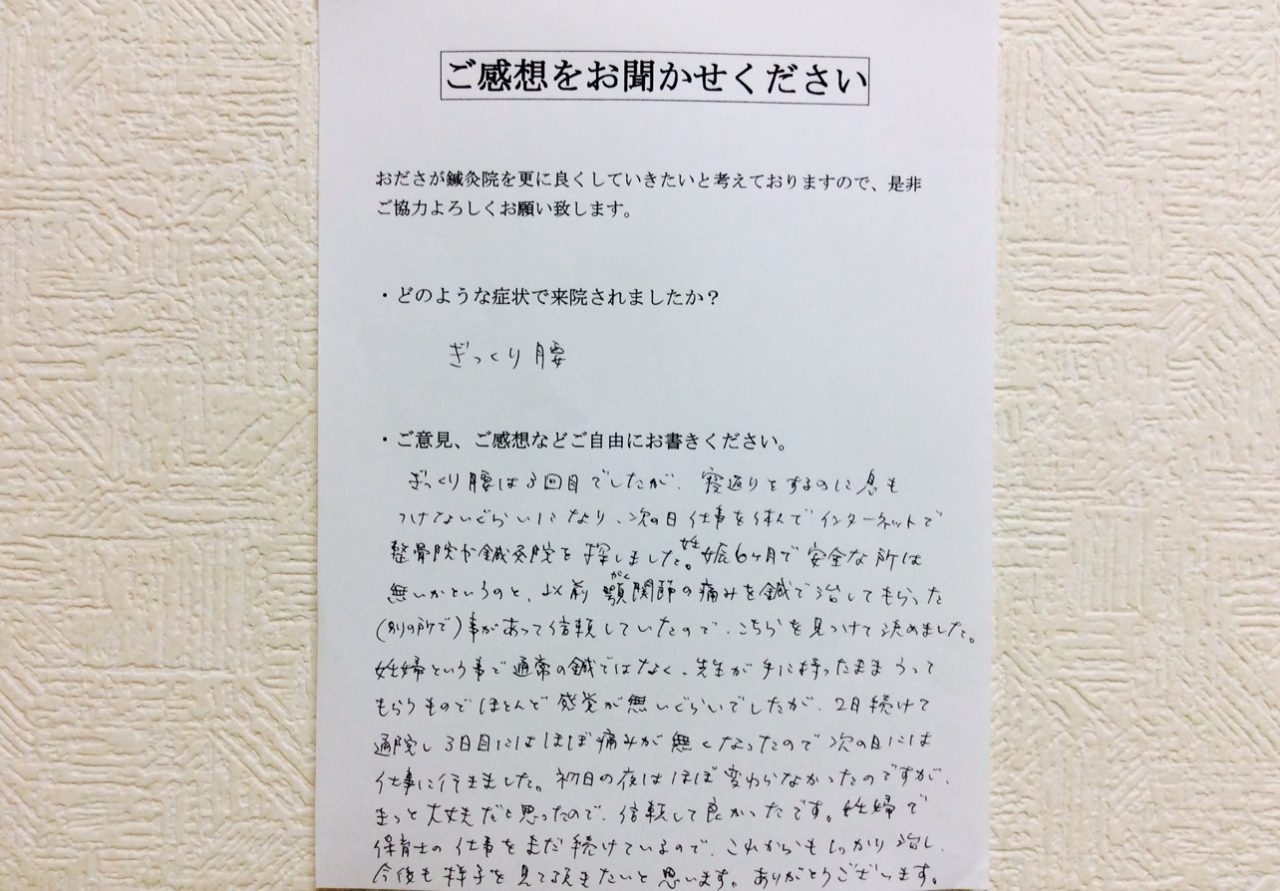 ご感想をお聞かせください
おださが鍼灸院を更に良くしていきたいと考えておりますので、是非
ご協力よろしくお願い致します。
・どのような症状で来院されましたか？
ぎっくり腰
・ご意見、ご感想などご自由にお書きください。
ぎっくり腰は3回目でしたが、寝返りをするのに息も
つけないぐらいになり、次の日仕事を休んでインターネットで
整骨院や鍼灸院を探しました。妊娠6ヶ月で安全な所は
無いかというのと、以前顎関節の痛みを鍼で治してもらった
(別の所で)事があって信頼していたので、こちらを見つけて決めました。
妊婦という事で通常の鍼ではなく、先生が手に持ったままうって
もらうものでほとんど感覚が無いぐらいでしたが、2日続けて
通院し3日目にはほぼ痛みが無くなったので次の日には
仕事に行きました。初日の夜はほぼ変わらなかったのですが、
きっと大丈夫だと思ったので、信頼して良かったです。妊婦で
保育士の仕事をまだ続けているので、これからもしっかり治し、
今後も様子を見て頂きたいと思います。ありがとうございます。